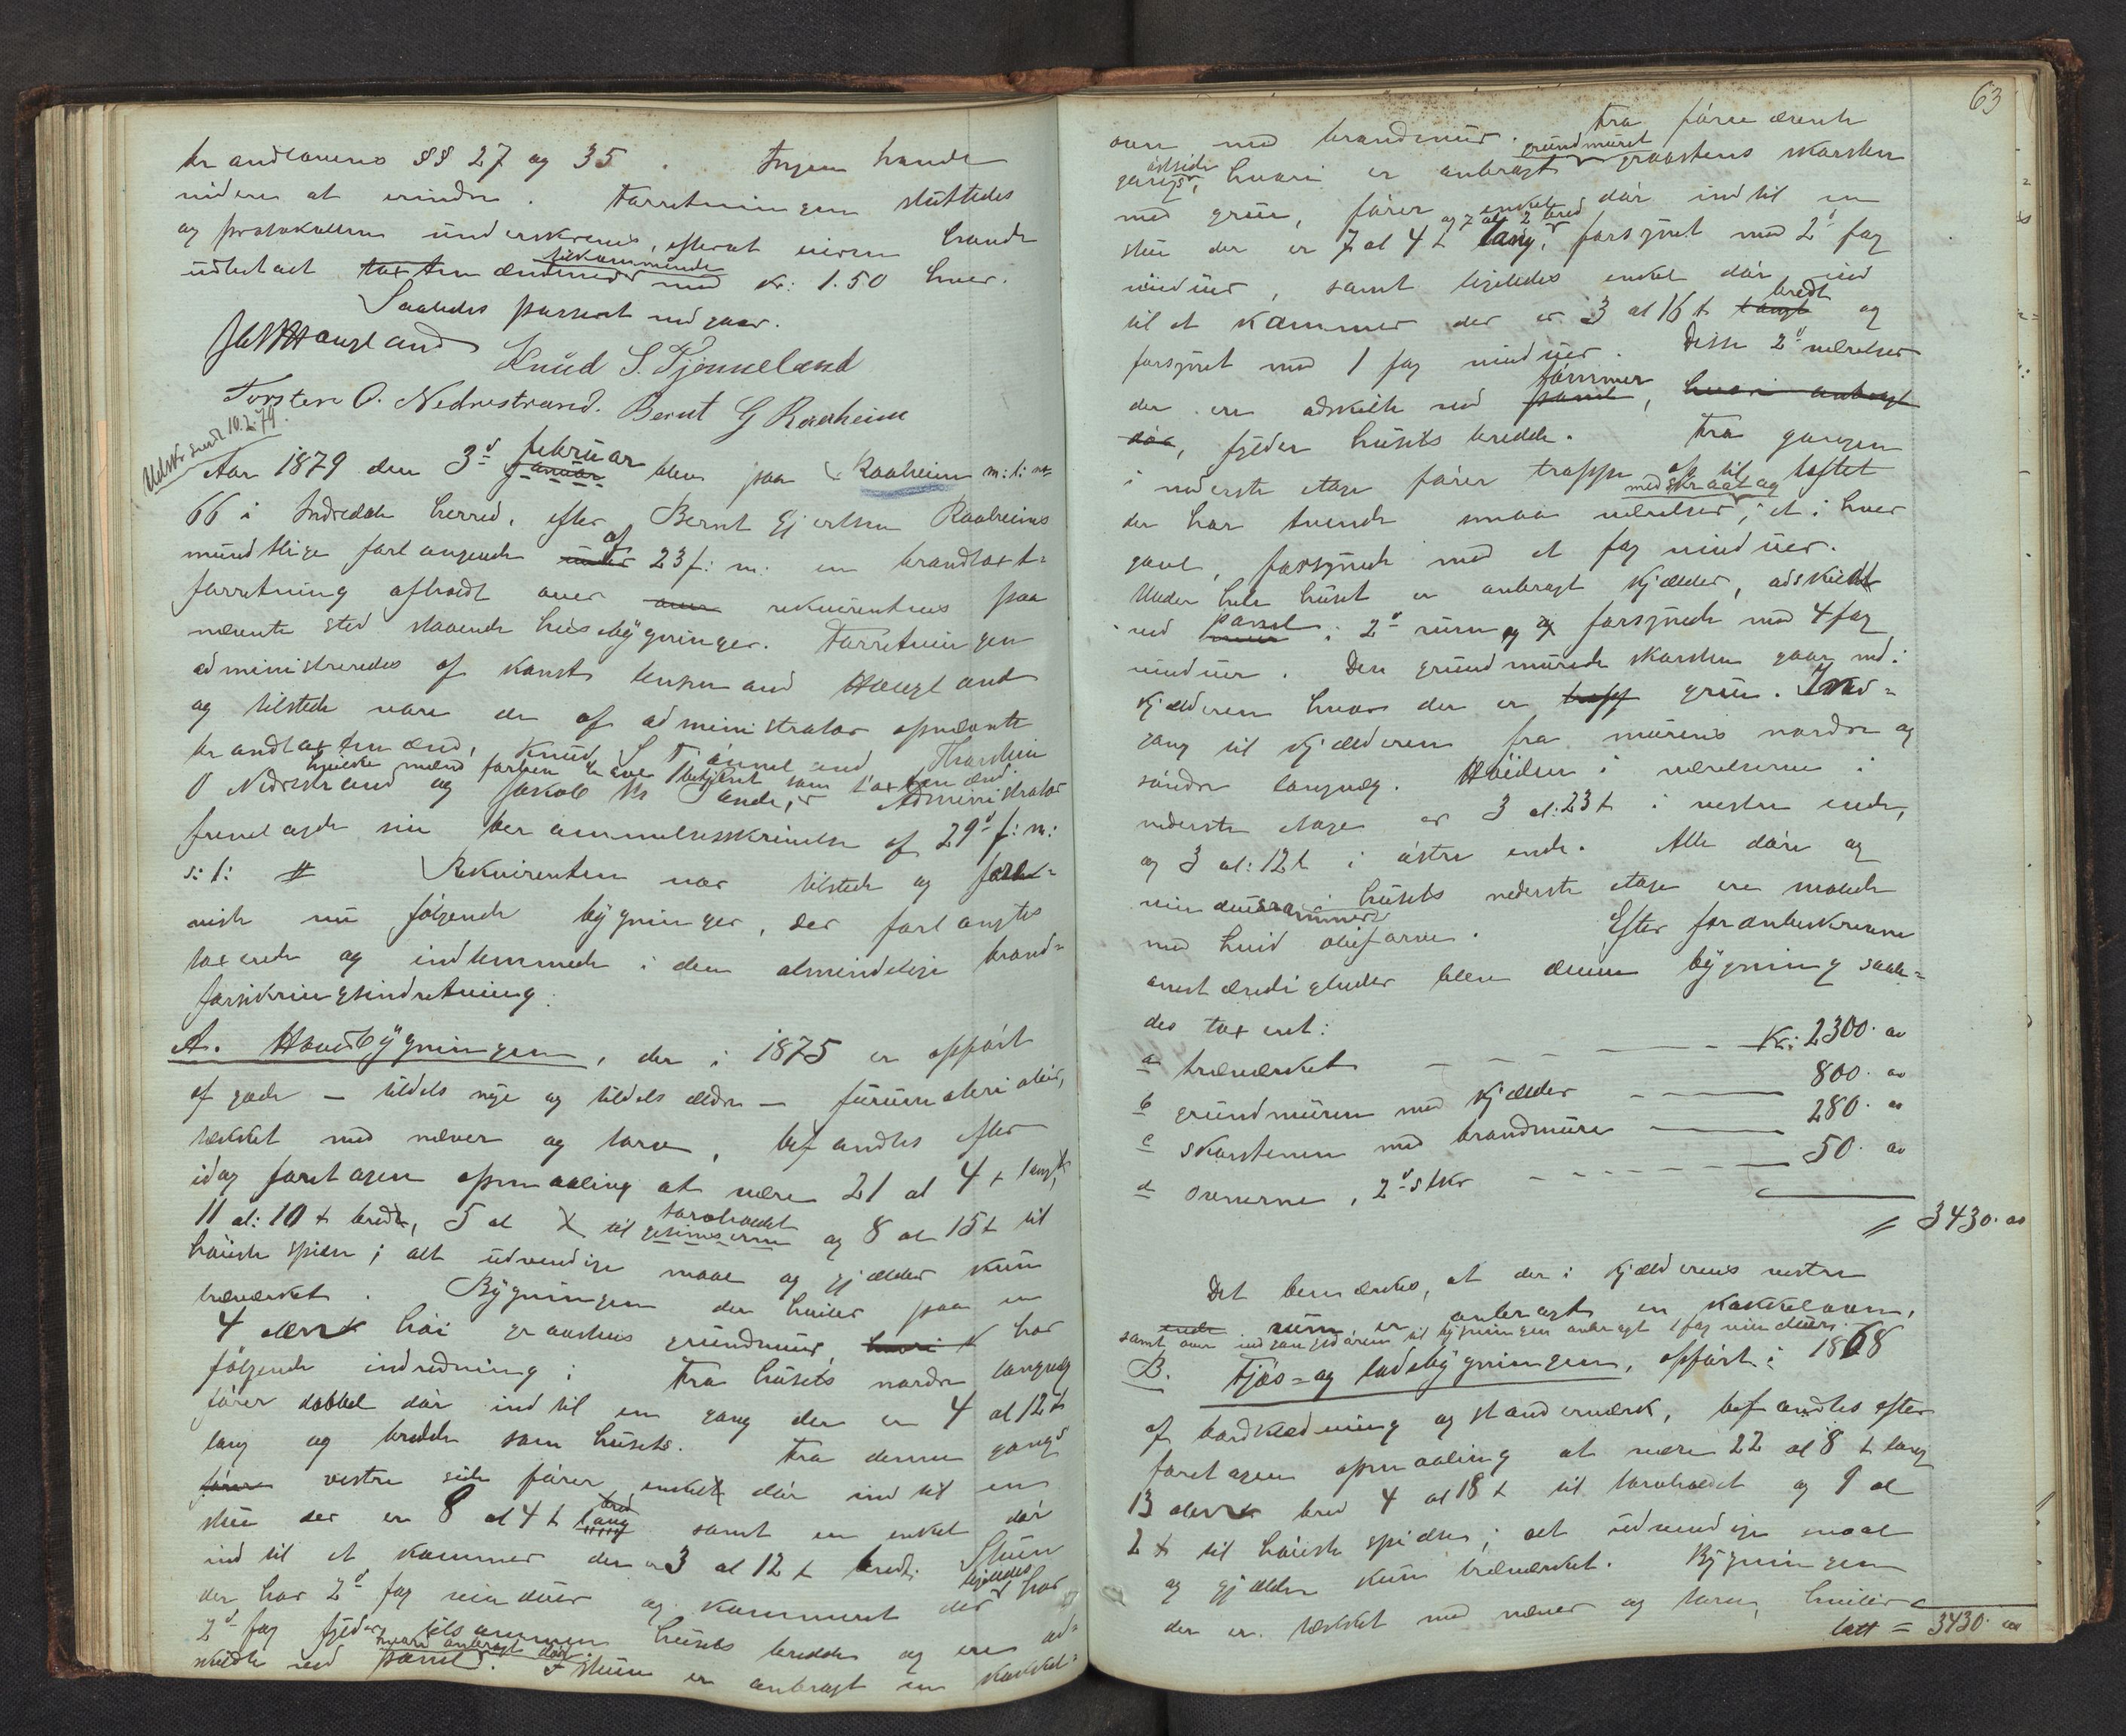 brandlovens §§ 27 og 35. Ingen havde
videre at erindre. Forretningen sluttedes
og protokollen underskreves, efterat eieren havde
udbetalt taxtmændene tilkommende med kr: 1.50 hver.
Saaledes passeret vedgaar.
Haugland
Knud S. Tjønneland
Torsten O. Nedrestrand. Bernt G Raaheim
Udskr sendt 10.2.79.
Aar 1879 den 3d januar februar blev paa Raaheim m: l: no
66 i Indredale herred, efter Bernt Gjertsen Raaheims
mundtlige forlangende under af 23 f: m: en brandtaxt=
forretning afholdt over over rekvirentens paa
nævnte sted staaende husebygninger. Forretningen
administreredes af konst lensmand Haugland
og tilstede vare de af administrator opnævnte
brandtaxtmænd, Knud S Tjønneland Thorstein
O Nedrestrand og Jakob Sande,
hvilke mænd forhen have betjent som taxtmænd. Administrator
fremlagde sin berammelsesskrivelse af 29d f: m:
s: l: # Rekvirenten var tilstede og fore=
viste nu følgende bygninger, der forlangtes
taxerede og indlemmede i den almindelige brand=
forsikringsindretning:
A. Hovedbygningen, der i 1875 er opført
af gode — tildels nye og tildels ældre — furumaterialier,
tækket med næver og torv, befandtes efter
idag foretagen opmaaling at være 21 al 4 t lang,
11 al: 10 t bred, 5 al til gesimserne torvholdet og 8 al 15 t til
høieste spidse; alt udvendige maal og gjælder kun
træværket. Bygningen der hviler paa en
4 alen høi graastens grundmur, hvori har
følgende indredning: Fra husets nordre langvæg
fører dobbel dør ind til en gang der er 4 al 12 t
lang og bredde som husets. Fra denne gangs
fører vestre side fører enkelt dør ind til en
stue der er 8 al 4 t lang bred samt en enkel dør
ind til et kammer der er 3 al 12 t bredt. Stuen
der har 2d fag vinduer og kammeret der ligeledes har
2d fag fylder tilsammen husets bredde og ere ad=
skilte ved panel hvori anbragt dør. I stuen er anbragt en kakkel=
63
ovn med brandmur. Fra førnævnte
gangs østside, hvori er anbragt grundmuret graastens skorsten
med grue, fører enkel dør ind til en
stue der er 7 al 4 t lang og 7 al 2 bred, forsynet med 2d fag
vinduer, samt ligeledes enkel dør ind
til et kammer der er 3 al 16 t langt bredt og
forsynet med 1 fag vinduer. Disse 2d værelser
der ere adskilte ved panel tømmer, hvori anbragt
dør, fylder husets bredde. Fra gangen
i nederste etage fører trappe op til loftet
der har tvende smaa værelser med skraatag, et i hver
gavl, forsynede med et fag vinduer.
Under hele huset er anbragt kjælder, adskildt
ved panel i 2d rum og forsynede med 4 fag
vinduer. Den grundmurede skorsten gaar ned i
kjælderen hvor der er grue. Ned=
gang til kjælderen fra murens nordre og
søndre langvæg. Høiden i værelserne i
nederste etage er 3 al: 23 t i vestre ende,
og 3 al: 12 t i østre ende. Alle døre og
vinduesrammer i husets nederste etage ere malede
med hvid oliefarve. Efter foranbeskrevne
omstændigheder blev denne bygning saale=
des taxeret:
a træværket — — — — — Kr: 2300. 00
b grundmuren med kjælder — — — 800. 00
c skorstenen med brandmure — — 280. 00
d ovnerne, 2d stkr — — — — — 50. 00
= 3430. 00
Det bemærkes, at der i kjælderens vestre
ende rum er anbragt en kakkelovn,
samt over indgangsdøren til bygningen anbragt 1 fag vinduer.
B. Fjøs= og ladebygningen, opført i 1868
af bordklædning og stavværk, befandtes efter
foretagen opmaaling at være 22 al 8 t lang
13 alen bred 4 al 18 t til torvholdet og 9 al
2 t til høieste spidse; alt udvendige maal
og gjælder kun træværket. Bygningen
der er tækket med næver og torv, hviler
latt = 3430. 00